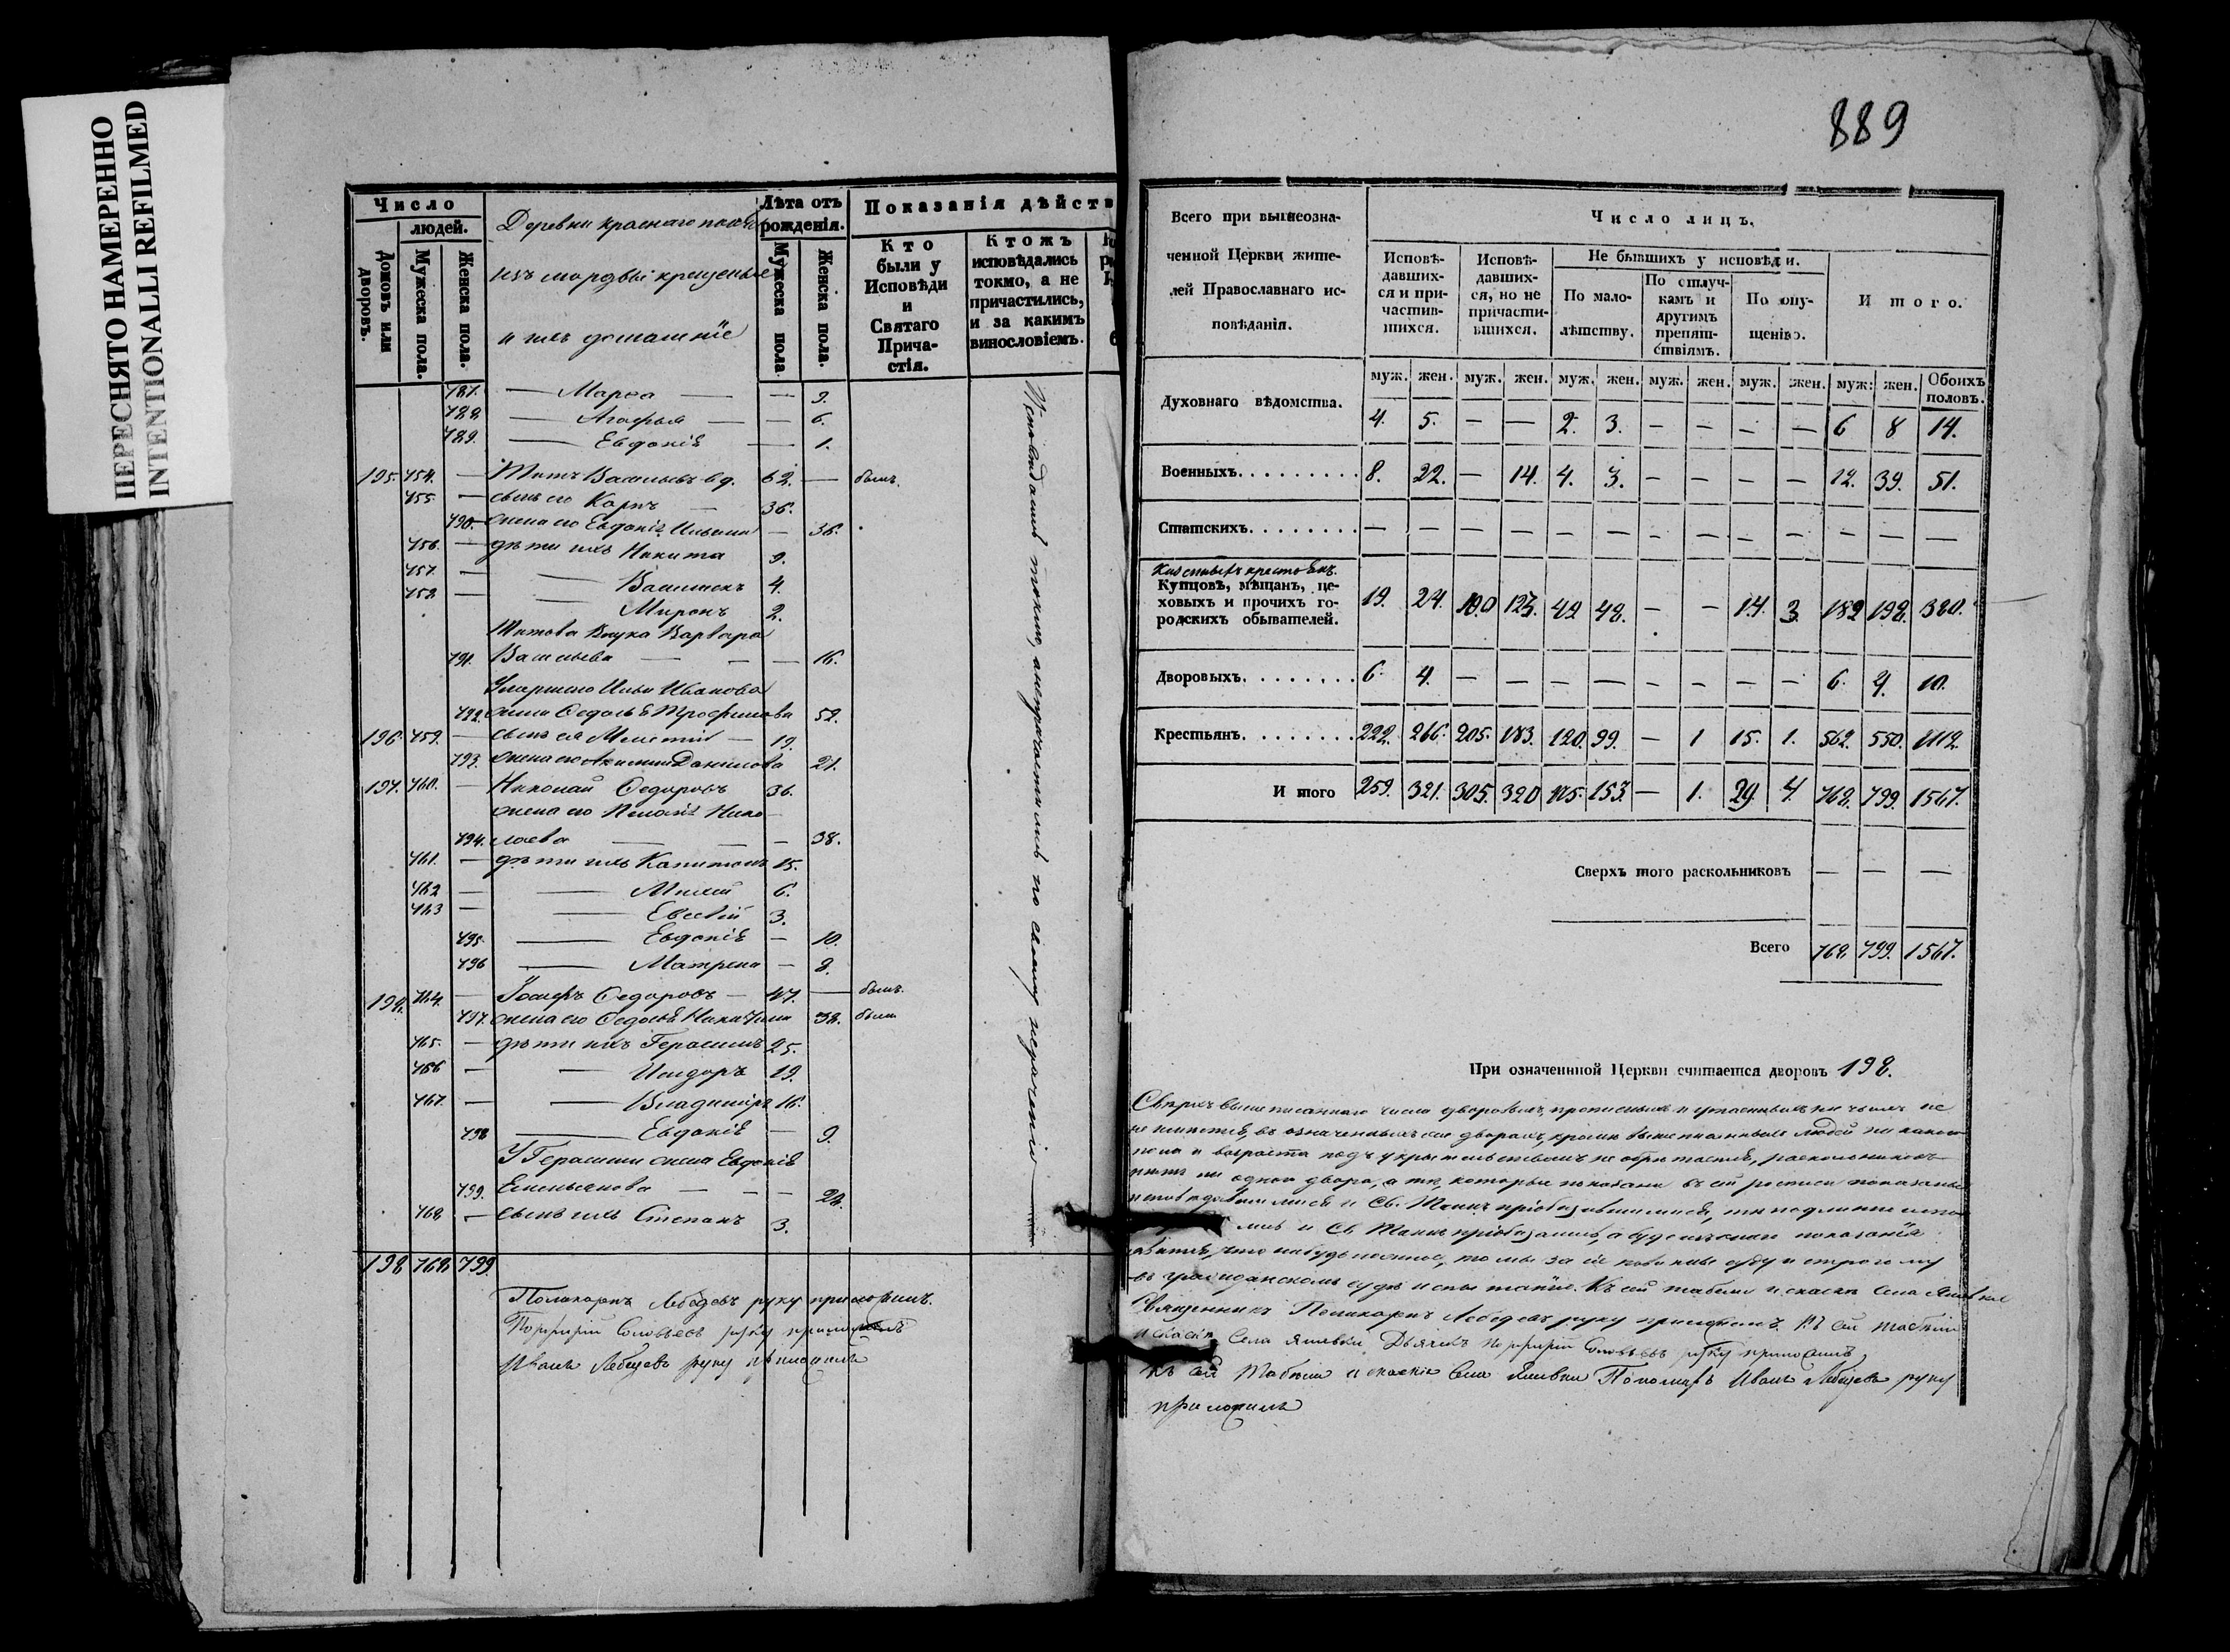 ПЕРЕСНЯТО НАМЕРЕННО
INTENTIONALLI REFILMED
Число
людей.
Домовъ или дворовъ.
Мужеска пола.
Женска пола.
Деревни краснаго
изъ мордвы крещеные
и ихъ домашніе
Лѣта отъ рожденія.
Мужеска пола
Женска пола.
Показанія дѣйств
Кто были у Исповѣди и Святаго Прича- стія.
Ктожъ исповѣдались токмо, а не причастились, и за какимъ винословіемъ.
787. — Марѳа — — 9.
788. — Агафья — — 6.
789. — Евдокія — 1.
195. 754. — Титъ Васильевъ вд. 62. — былъ.
755. — сынъ его Карпъ — 36.
790. жена его Евдокія — 36.
756. — дѣти ихъ Никита 9.
757. — — 4.
758. — — Миронъ 2.
Титова внука Варвара
791. Васильева — — — 16.
Умаршаго Ильи Иванова
792. жена Ѳедосья Трофимова 52.
196. 759. — сынъ ея — 19.
793. жена его Данилова 21.
197. 760. — Николай Ѳедоровъ 36.
жена его Пелагія Нико-
794. лаева — — — 38.
761. — дѣти ихъ Капитонъ 15.
762 — — Михей 6.
763 — — Евсевій 3.
795. — Евдокія — 10.
796 — Матрена — 8.
198. 764. — Іосифъ Ѳедоровъ — 47. — былъ.
797. жена его Ѳедосья 38. была
765. — дѣти ихъ Герасимъ 25.
766 — — Исидоръ 19.
767. — — Владимиръ 16.
798 — Евдокія — 9.
У Герасима жена Евдокія
799. Емельянова — — — 28.
768 — сынъ ихъ Степанъ 3.
198 768 799.
Исповѣдались токмо, а не причастились по своему нераченію
Поликарпъ Лебедевъ руку приложилъ.
Порфирій Соловьевъ руку приложилъ
Иванъ Лебедевъ руку приложилъ
889
Всего при вышеозна-
ченной Церкви жите-
лей Православнаго ис-
повѣданія.
Число лицъ.
Исповѣ- давших- ся и при- частив- шихся.
Исповѣ- давших- ся, но не причасти- вшихся.
Не бывшихъ у исповѣди.
По мало- лѣтству.
По отлуч- камъ и другимъ препят- ствіямъ.
По опу- щенію.
Итого.
муж. жен. муж. жен. муж. жен. муж. жен. муж. жен. муж: жен. Обоихъ половъ.
Духовнаго вѣдомства. 4. 5. — — 2. 3. — — — — 6 8 14.
Военныхъ......... 8. 22. — 14. 4. 3. — — — — 12. 39. 51.
Статскихъ........ — — — — — — — — — — — — —
крестьянъ.
Купцовъ, мѣщанъ, це- ховыхъ и прочихъ го- родскихъ обывателей. 19. 24. 100 123. 49 48. — — 14. 3. 182 198. 380.
Дворовыхъ........ 6. 4. — — — — — — — — 6. 4. 10.
Крестьянъ........ 222. 266. 205. 183. 120. 99. — 1 15. 1. 562. 550. 1112.
И того 259. 321. 305. 320 175. 153. — 1. 29. 4. 768. 799. 1567.
Сверхъ того раскольниковъ — — —
Всего 768 799. 1567.
При означенной Церкви считается дворовъ 198.
Сверхъ вышеписаннаго числа дворовъ, прописныхъ и утаенныхъ не
имѣется, въ означенныхъ же дворахъ, кромѣ вышеписанныхъ людей
пола и возраста подъ укрывательствомъ не обрѣтается, раскольниковъ
ни одного двора, а тѣ, которые показаны въ сей росписи
исповѣдавшимися и Св. Таинъ пріобщившимися, тѣ подлинно
и Св Таинъ пріобщались, а буде показанія
что нибудь то мы за сіе повинны суду и строгому
въ гражданскомъ судѣ испытанію. Къ сей табели и сказкѣ села
Священникъ Поликарпъ Лебедевъ руку приложилъ. Къ сей табели
и сказкѣ села Дьячекъ Порфирій Соловьевъ руку приложилъ,
Къ сей табели и сказкѣ села Пономарь Иванъ Лебедевъ руку
приложилъ